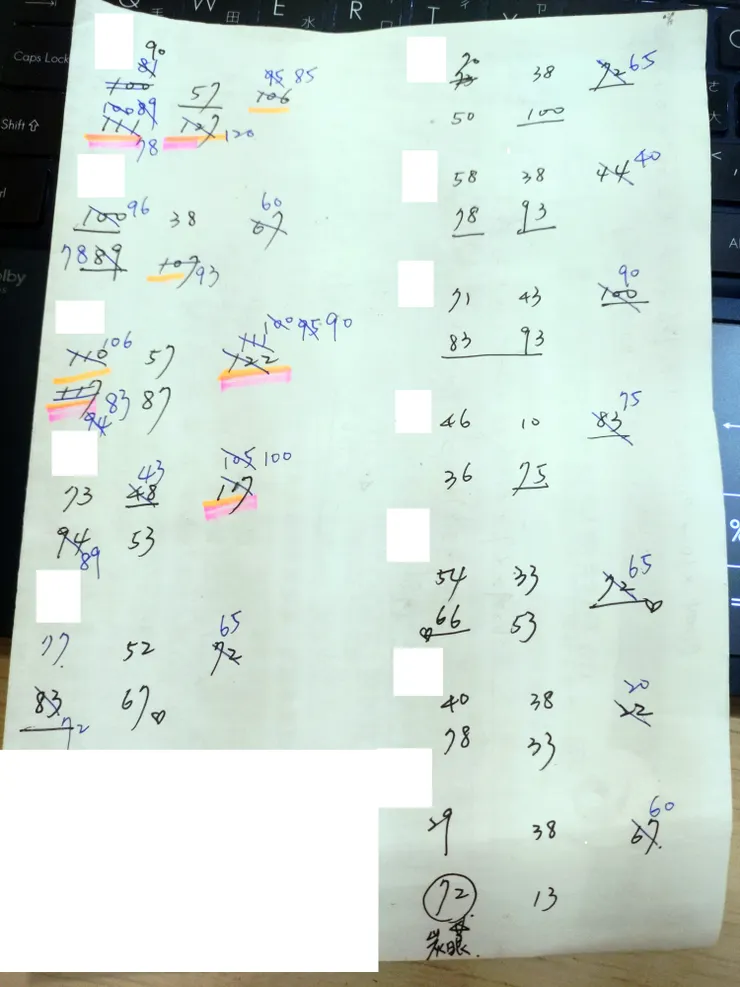 90
81
100 57 95 85
100 89 106
111 78 127 120
100 96 38 60
67
78 89 107 93
110 106 57 111 100 95 90
122
117 83 87
94
73 43 105 100
48 117
94 89 53
77 52 65
72
83 72 67
%
70 38 72 65
50 100
58 38 44 40
78 93
71 43 90
100
83 93
46 10 75
83
36 75
54 33 65
72
66 53
40 38 20
22
78 33
29 38 60
67
72 13
Caps Lock
Shift
W
E
R
水
田